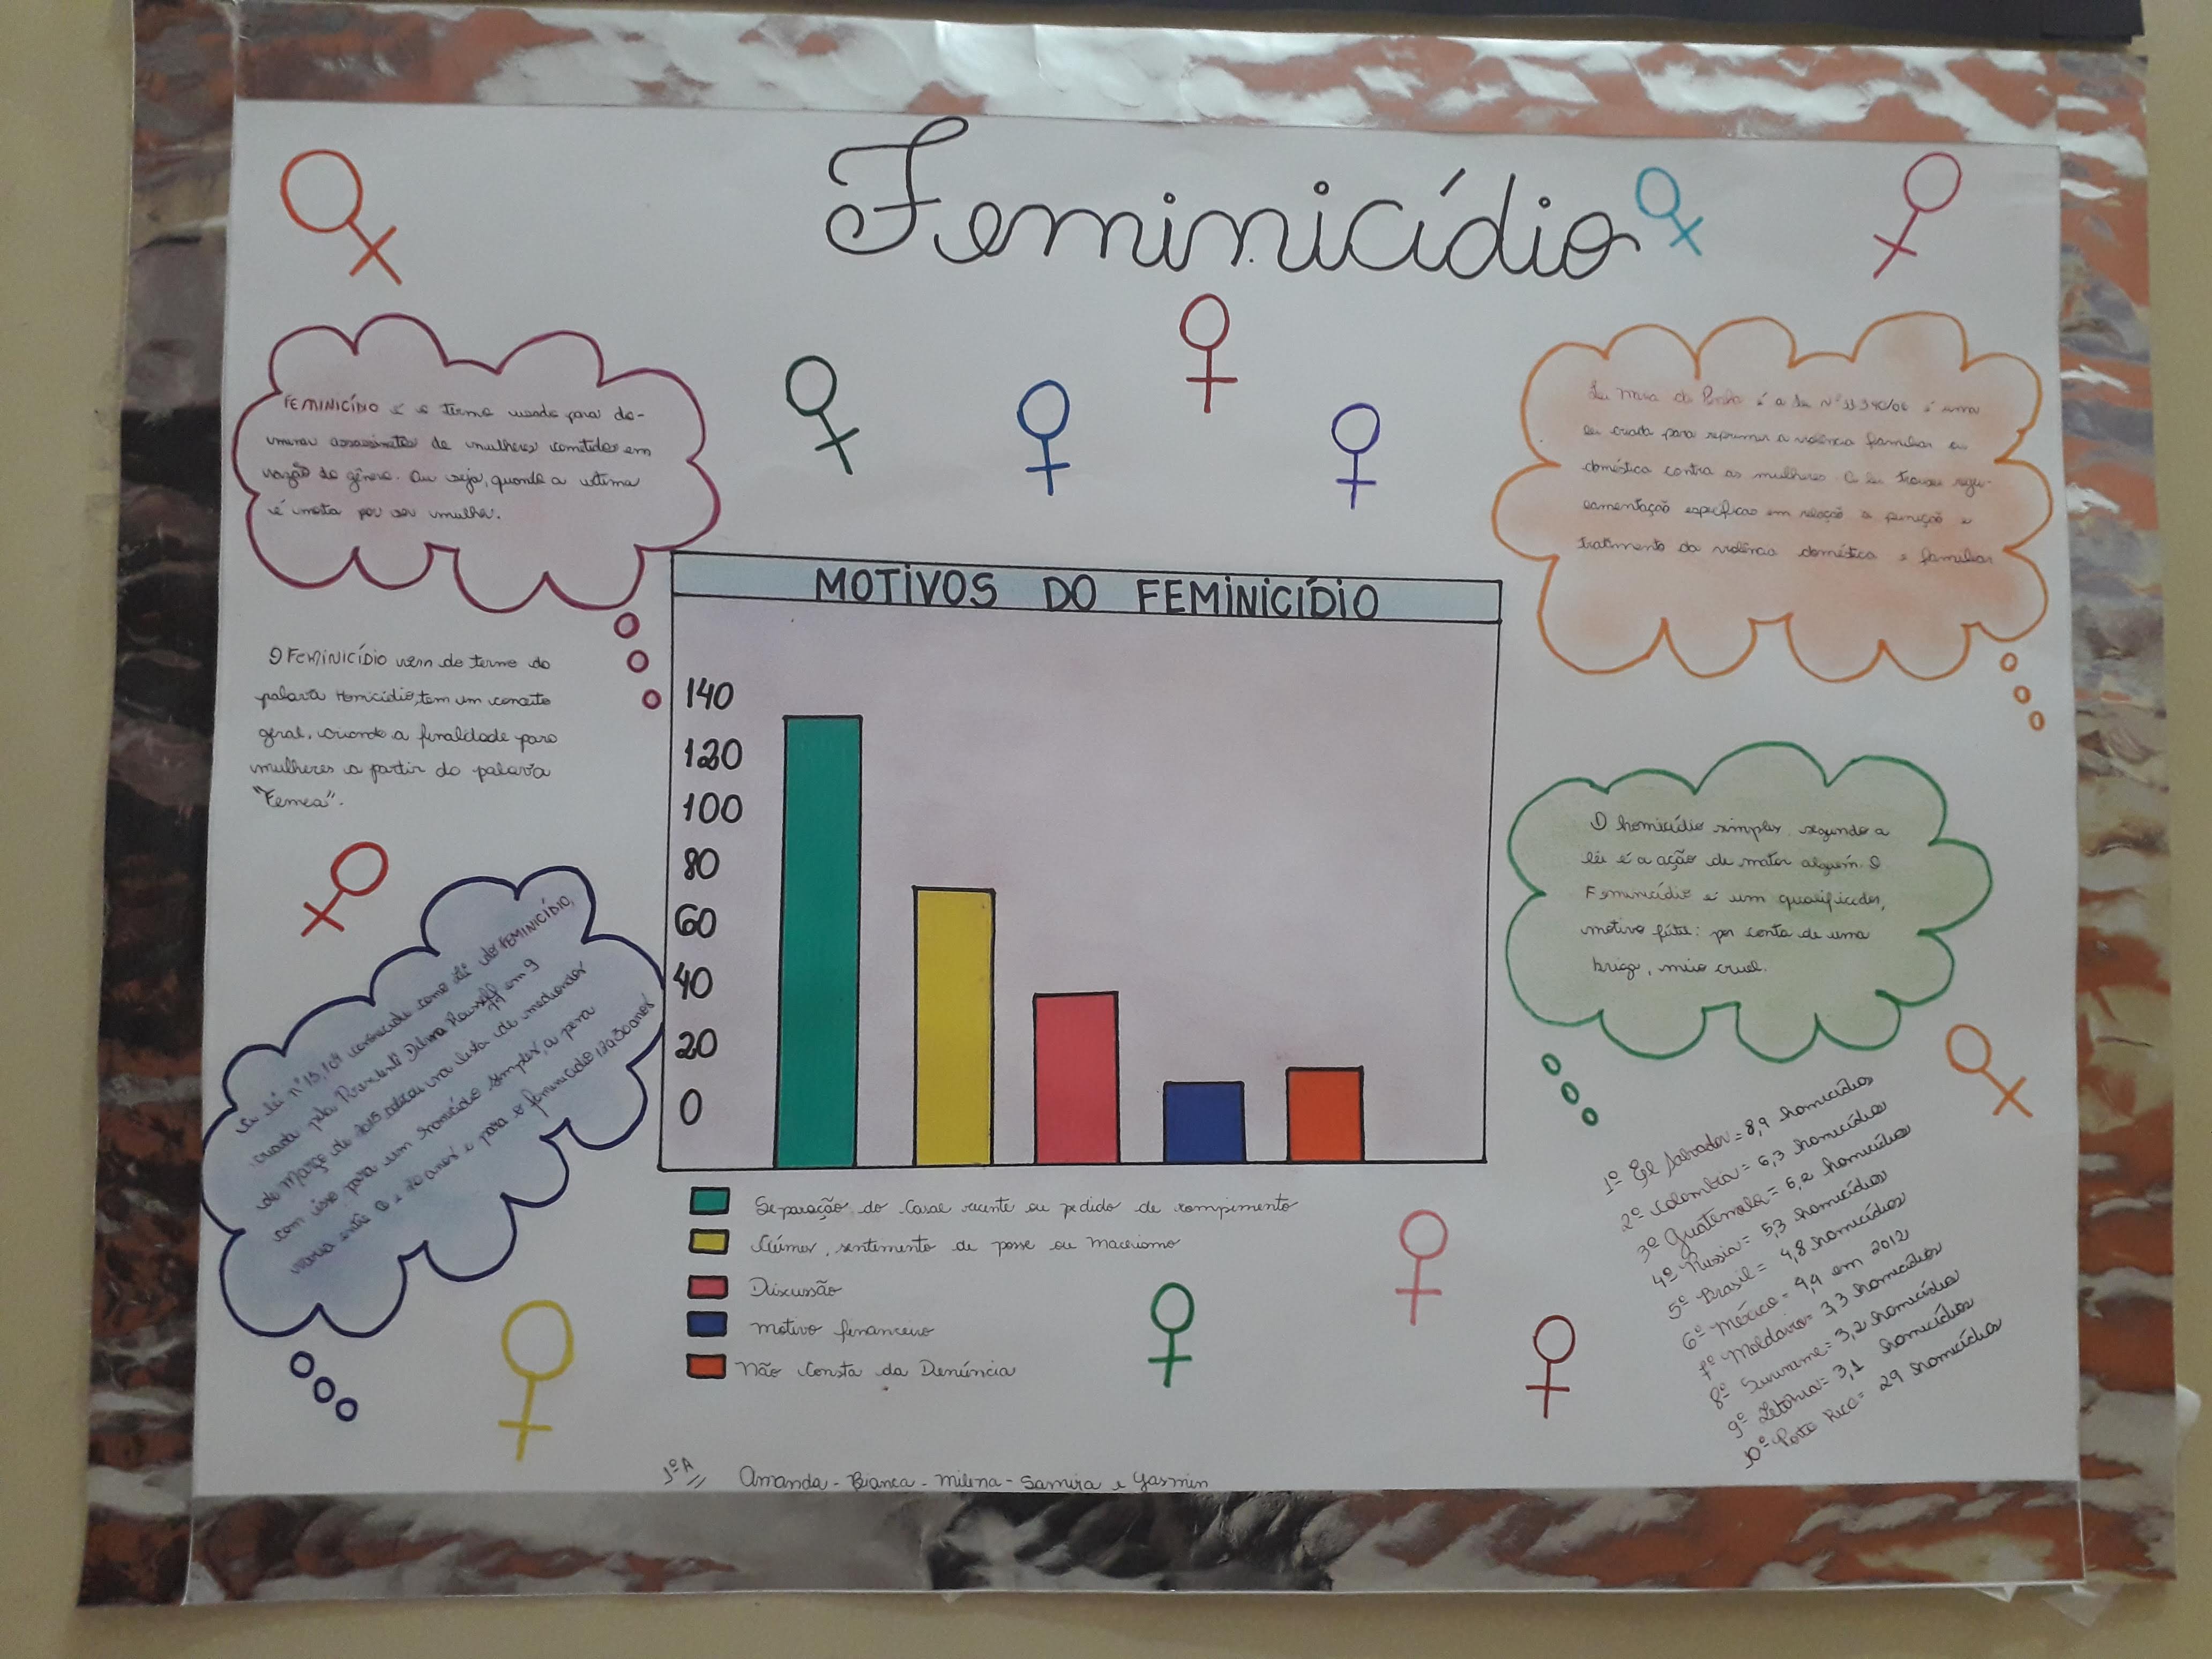 Feminicídio
FEMINICÍDIO é o termo usado para do-
minar assassinatos de mulheres cometidos em
razão do gênero. Ou seja, quando a vitima
é morta por ser mulher.
O FEMINICÍDIO vem do termo do
palavra Homicídio, tem um conceito
geral, criando a finalidade para
mulheres a partir do palavra
"Femea".
a lei nº 13.104 conhecida como lei do FEMINICÍDIO,
criada pela President Dilma Rousseff em 9
de Março de 2015 na lista de
com isso para um homicídio simples, a pena
varia entre 6 a 20 anos e para o feminicídio 12 a 30 anos
MOTIVOS DO FEMINICÍDIO
140
120
100
80
60
40
20
0
Separação do Casal recente ou pedido de rompimento
Ciúmes, sentimento de posse ou Machismo
Discussão
Motivo financeiro
Não Consta da Denúncia
Lei Maria da Penha é a Lei Nº 11340/06 é uma
lei criada para reprimir a violência familiar ou
doméstica contra as mulheres. A lei trouxe regu-
lamentação específicas em relação à punição e
tratamento da violência doméstica e familiar
O homicídio simples, segundo a
lei é a ação de matar alguém. O
Feminicídio é um qualificador,
motivo fútil: por conta de uma
briga, meio cruel.
1º El Salvador = 8,9 homicídios
2º Colombia = 6,3 homicídios
3º Guatemala = 6,2 homicídios
4º Russia = 5,3 homicídios
5º Brasil = 4,8 homicídios
6º México = 4,4 em 2012
7º Moldavia = 3,3 homicídios
8º Suriname = 3,2 homicídios
9º Letônia = 3,1 homicídios
10º Porto Rico = 29 homicídios
1º A Amanda - Bianca - Milena - Samira e Yasmin